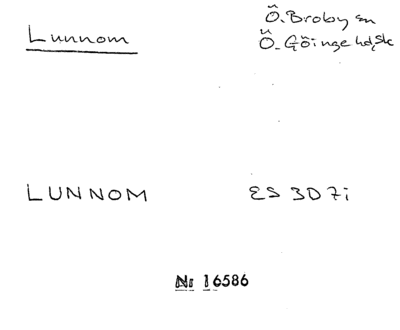 Lunnom
Ö. Broby sn
Ö. Göinge hd, Sk
LUNNOM
ES 3D7i
Nr 16586